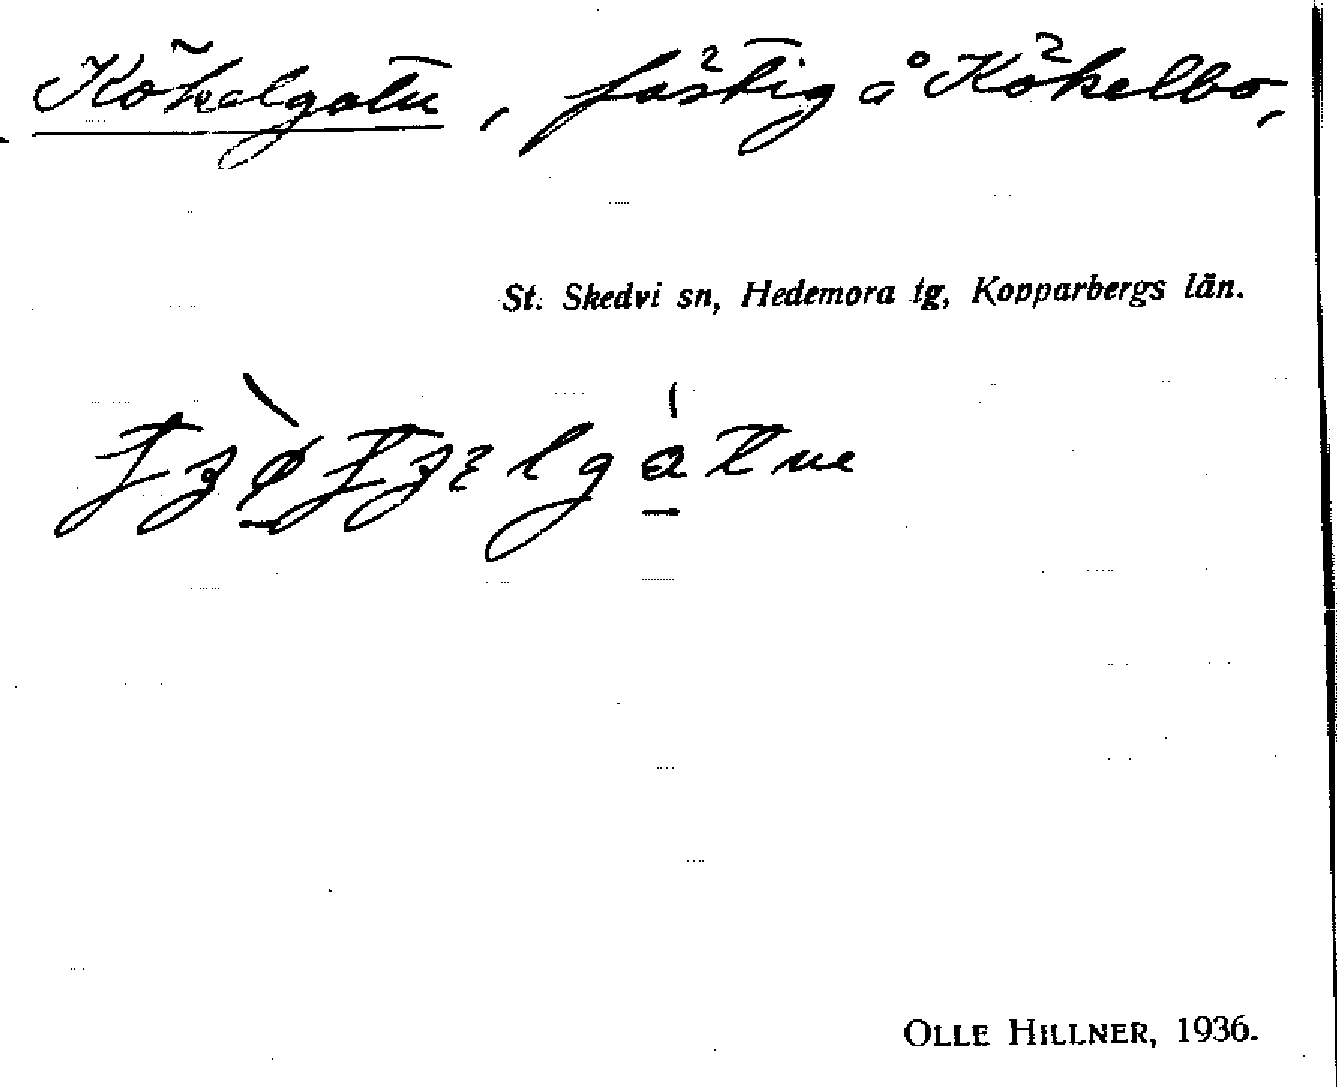 Kökelgatu, fästig å Kökelbo,
St. Skedvi sn, Hedemora tg, Kopparbergs län.
OLLE HILLNER, 1936.